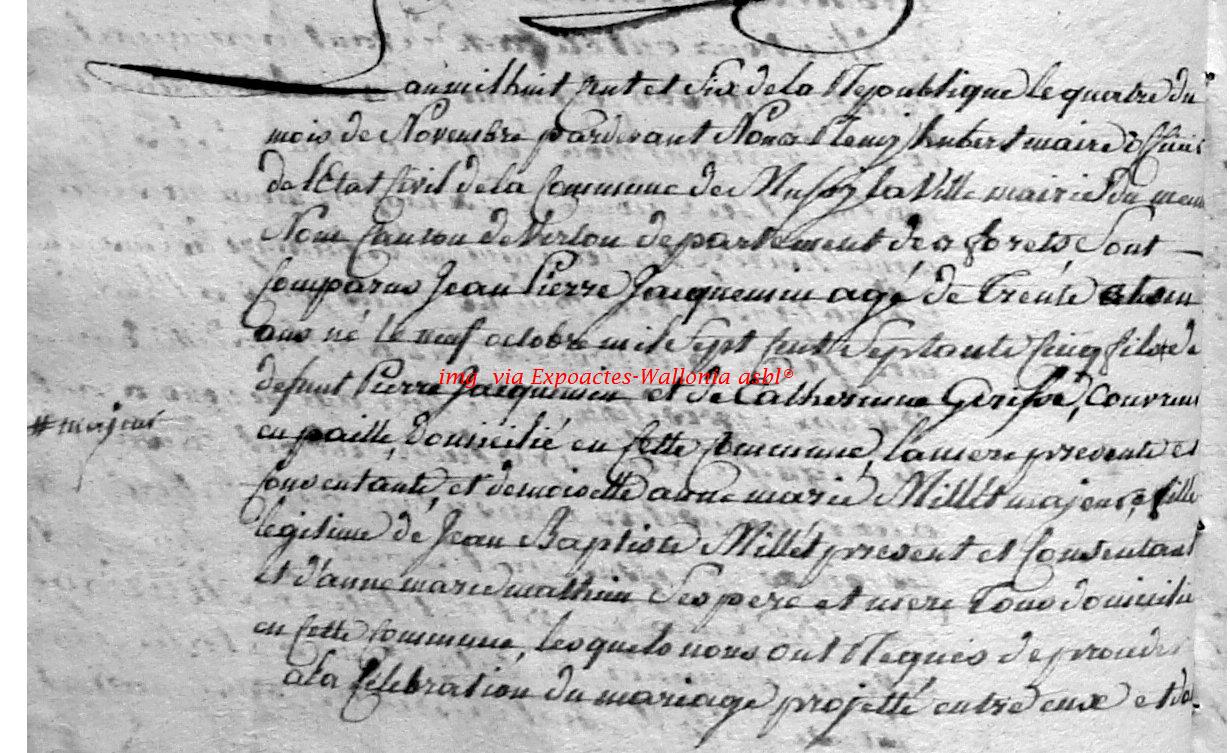 an mil huit cent et six de la Republique le quatre du
mois de Novembre pardevant Nous Remy hubert maire officier
de l'Etat Civil de la Commune de Mussy la Ville mairie du meme
Nom Canton de Virton departement des forets Sont
Comparus Jean Pierre Jacquemin agé de Trente et un
ans né le neuf octobre mil Sept cent Septante cinq fils de
defunt Pierre Jacquemin et de Catherinne couvreur
img via Expoactes-Wallonia asbl©
# majeur
en paille, domicilié en cette Commune, la mere presente et
consentante, et demoiselle anne marie Millét majeure, fille
legitime de Jean Baptiste Millét present et Consentant
et d'anne marie mathieu Ses pere et mere Tous domicilié
en cette Commune, lesquels nous ont Requis de proceder
a la Celebration du mariage projetté entre eux et do